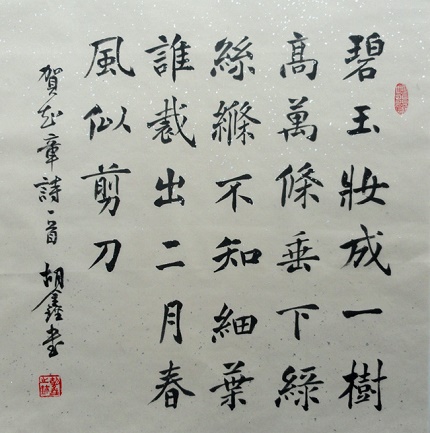 碧玉妝成一樹
高萬條垂下綠
絲縧不知細葉
誰裁出二月春
風似剪刀
賀知章詩一首 胡鑫書